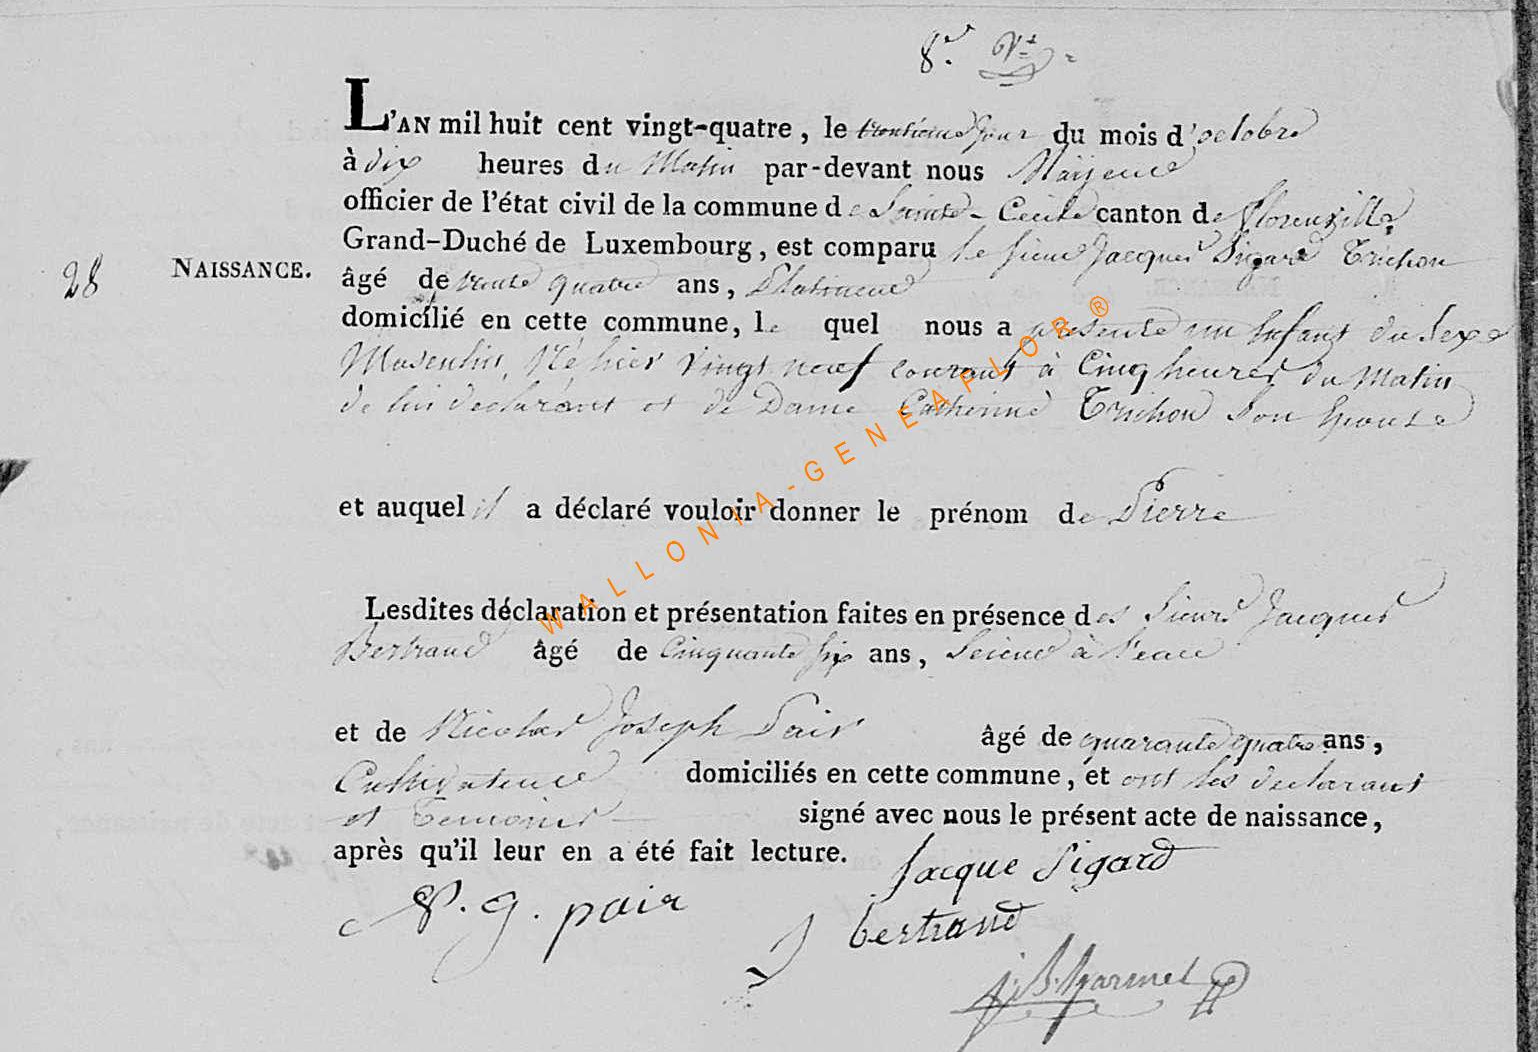 8.e Vt
L'AN mil huit cent vingt-quatre, le trentieme jour du mois d'octobre
à dix heures du Matin par-devant nous
officier de l'état civil de la commune de Sainte-Cecile canton de florenville
Grand-Duché de Luxembourg, est comparu le sieur Jacques Sigard Trichon
28 NAISSANCE.
âgé de trente quatre ans, Platineur
domicilié en cette commune, le quel nous a presenté un Enfant du Sexe
Masculin, Né hier vingt neuf courant à Cinq heures du Matin
de lui declarant et de Dame Catherine Trichon Son Epouse
et auquel il a déclaré vouloir donner le prénom de Pierre
Lesdites déclaration et présentation faites en présence des Sieurs Jacques
Bertrand âgé de Cinquante six ans, Scieur à l'eau
et de Nicolas Joseph Pair âgé de quarante quatre ans,
Cultivateur domiciliés en cette commune, et ont les declarant
et Temoins signé avec nous le présent acte de naissance,
après qu'il leur en a été fait lecture.
Jacque Sigard
N. g. pair
J bertrand
WALLONIA-GENEAFLOR®